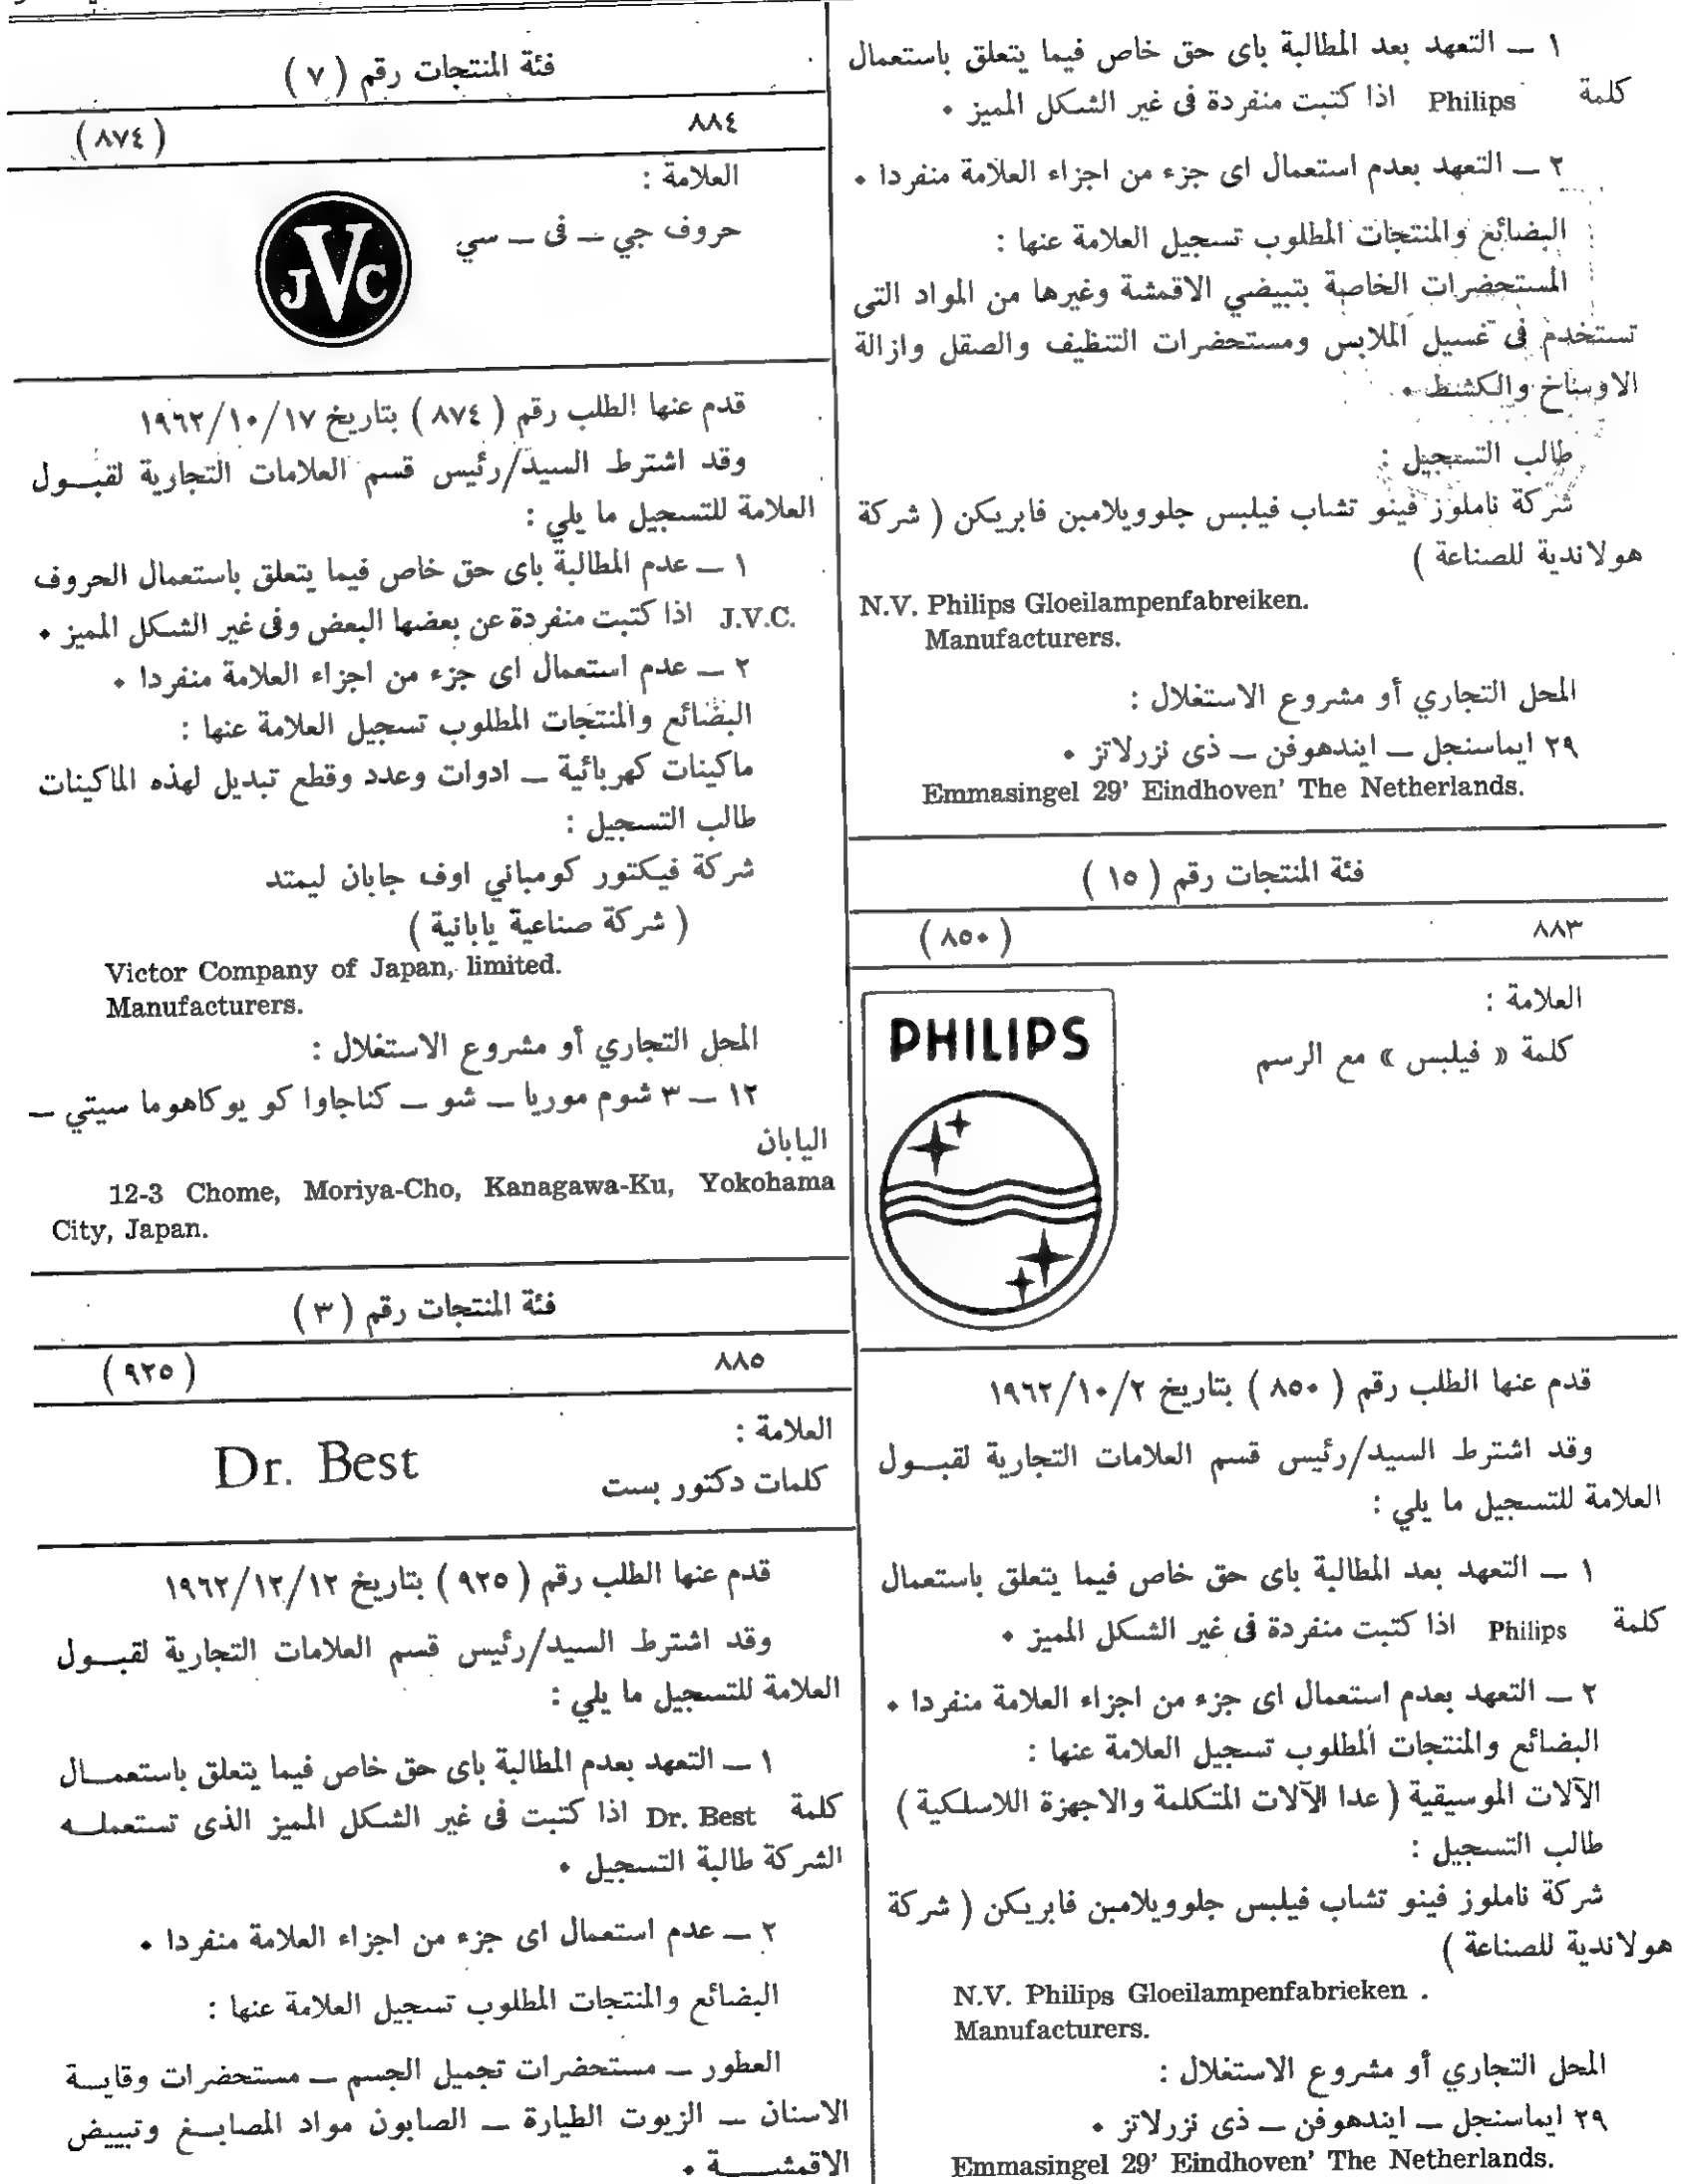 ١ — التعهد بعد المطالبة باى حق خاص فيما يتعلق باستعمال
كلمة Philips اذا كتبت منفردة فى غير الشكل المميز ٠
٢ — التعهد بعدم استعمال اى جزء من اجزاء العلامة منفردا ٠
البضائع والمنتجات المطلوب تسجيل العلامة عنها :
المستحضرات الخاصة بتبيضي الاقمشة وغيرها من المواد التى
تستخدم فى غسيل الملابس ومستحضرات التنظيف والصقل وازالة
الاوساخ والكشط ٠
طالب التسجيل :
شركة ناملوز فينو تشاب فيلبس جلوويلامبن فابريكن ( شركة
هولاندية للصناعة )
N.V. Philips Gloeilampenfabreiken.
Manufacturers.
المحل التجاري أو مشروع الاستغلال :
٢٩ ايماسنجل — ايندهوفن — ذى نزرلاتز ٠
Emmasingel 29’ Eindhoven’ The Netherlands.
فئة المنتجات رقم ( ١٥ )
٨٨٣ ( ٨٥٠ )
العلامة :
كلمة « فيلبس » مع الرسم
PHILIPS
قدم عنها الطلب رقم ( ٨٥٠ ) بتاريخ ١٩٦٢/١٠/٢
وقد اشترط السيد/رئيس قسم العلامات التجارية لقبـول
العلامة للتسجيل ما يلي :
١ — التعهد بعد المطالبة باى حق خاص فيما يتعلق باستعمال
كلمة Philips اذا كتبت منفردة فى غير الشكل المميز ٠
٢ — التعهد بعدم استعمال اى جزء من اجزاء العلامة منفردا ٠
البضائع والمنتجات المطلوب تسجيل العلامة عنها :
الآلات الموسيقية ( عدا الآلات المتكلمة والاجهزة اللاسلكية )
طالب التسجيل :
شركة ناملوز فينو تشاب فيلبس جلوويلامبن فابريكن ( شركة
هولاندية للصناعة )
N.V. Philips Gloeilampenfabrieken .
Manufacturers.
المحل التجاري أو مشروع الاستغلال :
٢٩ ايماسنجل — ايندهوفن — ذى نزرلاتز ٠
Emmasingel 29’ Eindhoven’ The Netherlands.
فئة المنتجات رقم ( ٧ )
٨٨٤ ( ٨٧٤ )
العلامة :
حروف جي — فى — سي
JVC
قدم عنها الطلب رقم ( ٨٧٤ ) بتاريخ ١٩٦٢/١٠/١٧
وقد اشترط السيد/رئيس قسم العلامات التجارية لقبـول
العلامة للتسجيل ما يلي :
١ — عدم المطالبة باى حق خاص فيما يتعلق باستعمال الحروف
J.V.C. اذا كتبت منفردة عن بعضها البعض وفى غير الشكل المميز ٠
٢ — عدم استعمال اى جزء من اجزاء العلامة منفردا ٠
البضائع والمنتجات المطلوب تسجيل العلامة عنها :
ماكينات كهربائية — ادوات وعدد وقطع تبديل لهذه الماكينات
طالب التسجيل :
شركة فيكتور كومباني اوف جابان ليمتد
( شركة صناعية يابانية )
Victor Company of Japan, limited.
Manufacturers.
المحل التجاري أو مشروع الاستغلال :
١٢ — ٣ شوم موريا — شو — كناجاوا كو يوكاهوما سيتي —
اليابان
12-3 Chome, Moriya-Cho, Kanagawa-Ku, Yokohama
City, Japan.
فئة المنتجات رقم ( ٣ )
٨٨٥ ( ٩٢٥ )
العلامة :
كلمات دكتور بست
Dr. Best
قدم عنها الطلب رقم ( ٩٢٥ ) بتاريخ ١٩٦٢/١٢/١٢
وقد اشترط السيد/رئيس قسم العلامات التجارية لقبـول
العلامة للتسجيل ما يلي :
١ — التعهد بعدم المطالبة باى حق خاص فيما يتعلق باستعمـال
كلمة Dr. Best اذا كتبت فى غير الشكل المميز الذى تستعملـه
الشركة طالبة التسجيل ٠
٢ — عدم استعمال اى جزء من اجزاء العلامة منفردا ٠
البضائع والمنتجات المطلوب تسجيل العلامة عنها :
العطور — مستحضرات تجميل الجسم — مستحضرات وقايـة
الاسنان — الزيوت الطيارة — الصابون مواد المصابـغ وتبييض
الاقمشـــة ٠